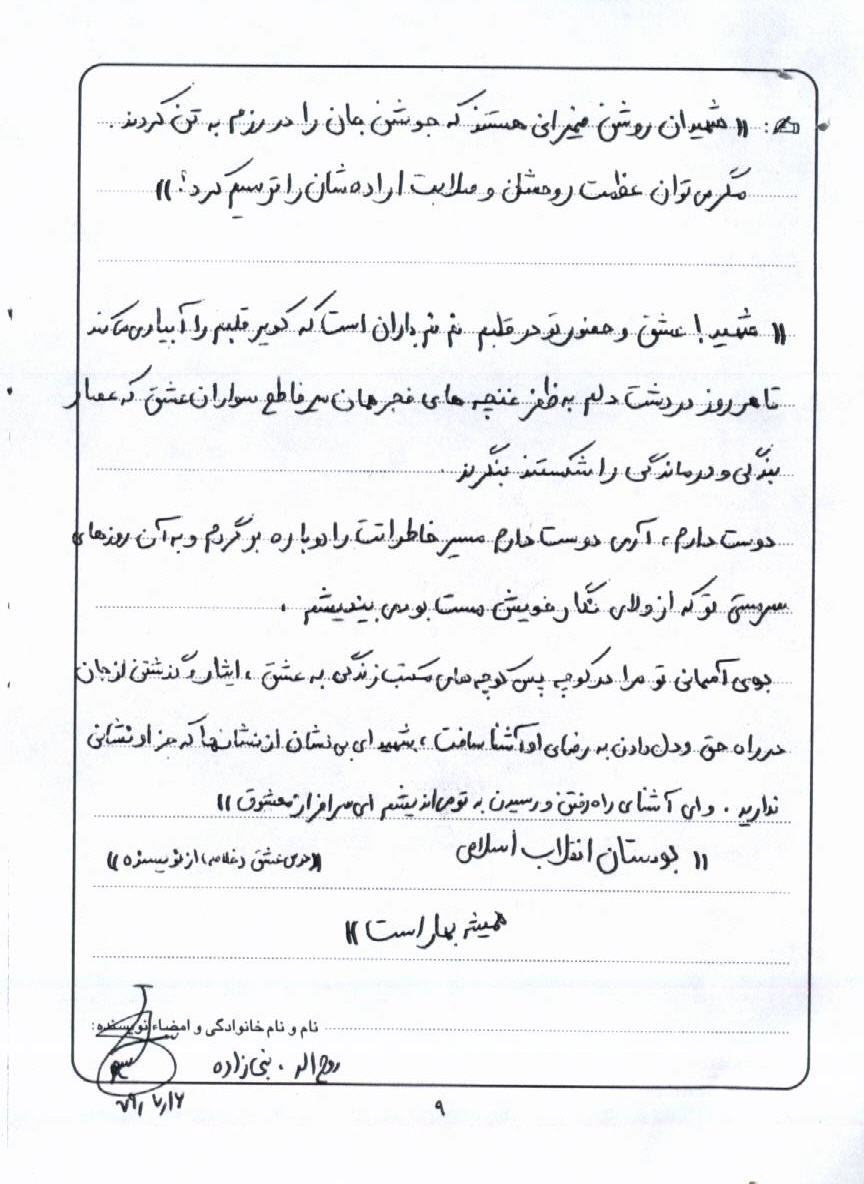 «شهیدان روشن ضمیرانی هستند که جوشن جان را در رزم به تن کردند.
مگر می‌توان عظمت روحشان و صلابت اراده‌شان را ترسیم کرد؟»
« شهید! عشق و حضور تو در قلبم نم نم باران است که کویر قلبم را آبیاری می‌کند
تا هر روز در دشت دلم به ظفر غنچه های فجر همان سواران عشق که حصار
بندگی و درماندگی را شکستند بنگرند.
دوست دارم، آری دوست دارم مسیر خاطراتت را دوباره برگردم و به آن روزهای
سرمستی تو که از ولای نگار خویش مست بودی بیندیشم.
بوی آسمانی تو مرا در کوچه پس کوچه های مکتب زندگی به عشق، ایثار و گذشتن از جان
در راه حق و دل دادن به رضای او آشنا ساخت، شهید ای بی نشان از نشانها که جز او نشانی
ندارید. و ای آشنای راه رفتن و رسیدن به تو می‌اندیشم ای سرافراز معشوق»
« بوستان انقلاب اسلامی
همیشه بهار است»
عشق (خلاصه) از نویسنده»
نام و نام خانوادگی و امضاء نویسنده:
روح اله . نبی زاده
۹